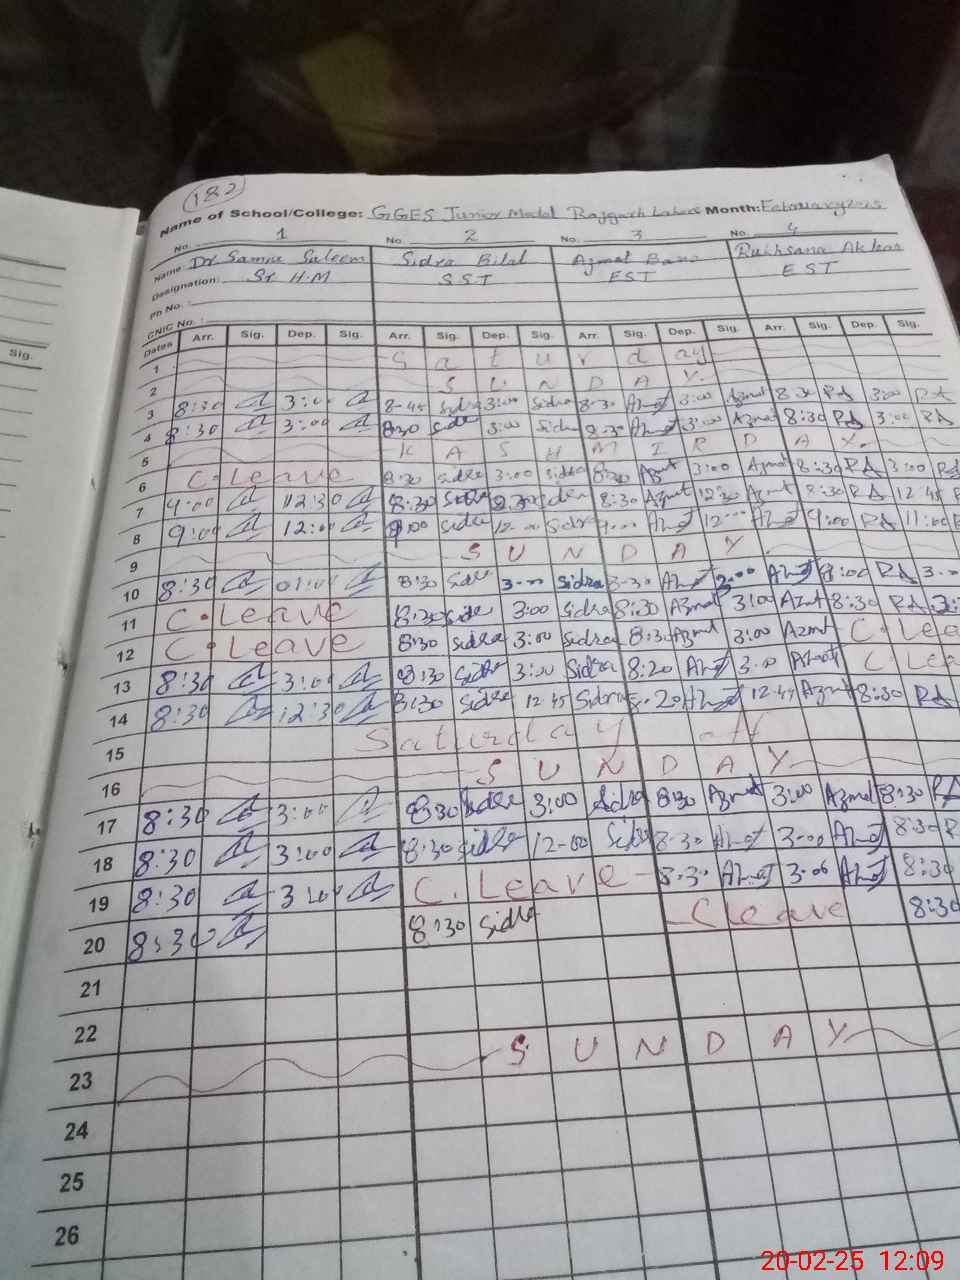 182
Name of School/College: GGES Junior Model Rajgarh Lahore Month: February 2025
No. 1 No. 2 No. 3 No. 4
Name: Dr Samra Saleem Sidra Bilal Azmat Bano Rukhsana Akhtar
Designation: Sr. H.M S.S.T EST EST
Ph No. :
CNIC No. :
Sig.
Dates Arr. Sig. Dep. Sig. Arr. Sig. Dep. Sig. Arr. Sig. Dep. Sig. Arr. Sig. Dep. Sig.
1 Saturday
2 SUNDAY
3 8:30 3:00 8-45 Sidra 3:00 Sidra 8-30 Azmat 3:00 Azmat 8:30 RA 3:00 RA
4 8:30 3:00 8:30 Sidra 3:00 Sidra 8:30 Azmat 3:00 Azmat 8:30 RA 3:00 RA
5 KASHMIR DAY
6 C. Leave 8:30 Sidra 3:00 Sidra 8:30 Azmat 3:00 Azmat 8:30 RA 3:00
7 9:00 12:30 8:30 Sidra Sidra 8:30 Azmat 12:30 Azmat 8:30 RA 12:45
8 9:00 12:00 9:00 Sidra 12:00 Sidra 9:00 Azmat 12:00 Azmat 9:00 RA 11:00
9 SUNDAY
10 8:30 01:00 8:30 Sidra 3:00 Sidra 8-30 Azmat 3:00 Azmat 8:00 RA
11 C. Leave 8:30 Sidra 3:00 Sidra 8:30 Azmat 3:00 Azmat 8:30 RA
12 C. Leave 8:30 Sidra 3:00 Sidra 8:30 Azmat 3:00 Azmat C. Lea
13 8:30 3:00 8:30 Sidra 3:00 Sidra 8:20 Azmat 3:00 Azmat C. Lea
14 8:30 12:30 8:30 Sidra 12:45 Sidra Azmat 12:45 Azmat 8:30 RA
15 Saturday off
16 SUNDAY
17 8:30 3:00 8:30 Sidra 3:00 Sidra 8:30 Azmat 3:00 Azmat 8:30 RA
18 8:30 3:00 8:30 Sidra 12-00 Sidra 8-30 Azmat 3:00 Azmat 8:30
19 8:30 3:00 C. Leave 8:30 Azmat 3:00 Azmat 8:30
20 8:30 8:30 Sidra C leave 8:30
21
22
23 SUNDAY
24
25
26
20-02-25 12:09